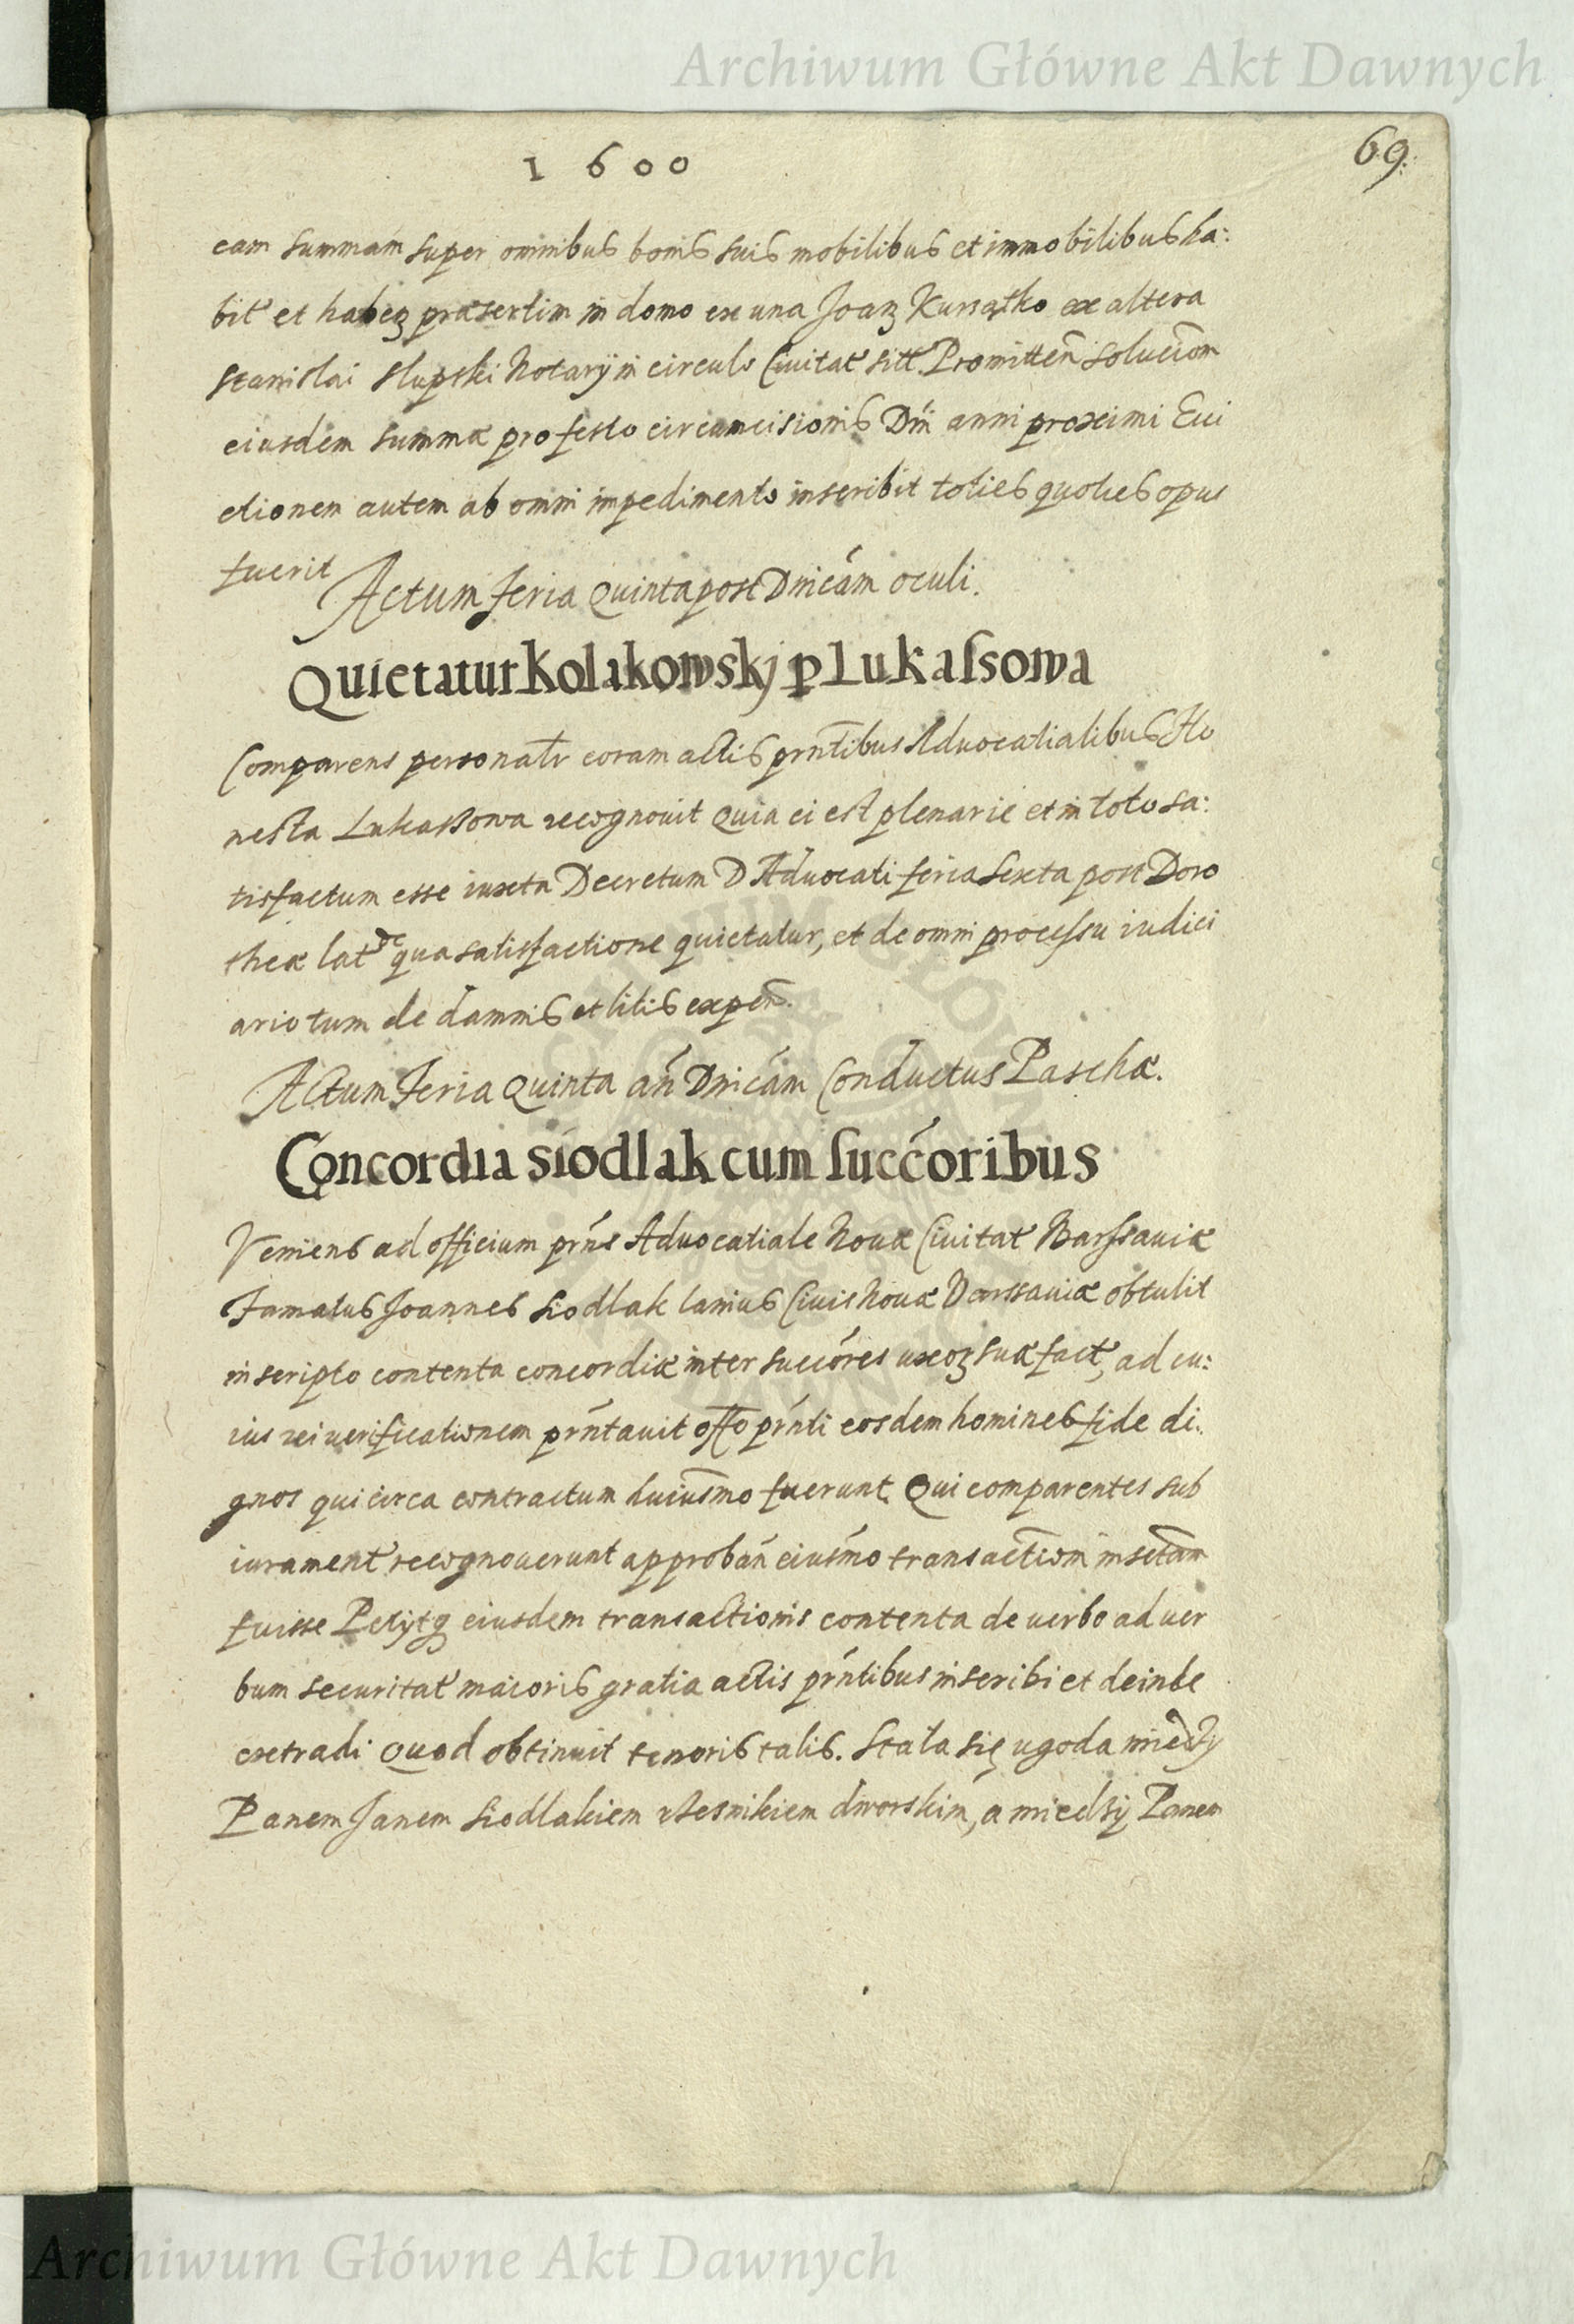 Archiwum Główne Akt Dawnych
1600
69.
eam summam super omnibus bonis suis mobilibus et immobilibus ha:
bit et habeʒ præsertim in domo ex una Joaʒ Kursątko ex altera
Stanislai Slupski Notarÿ in circulo Ciuitat sitt. Promitteñ soluciom
eiusdem summæ pro festo circumcisionis Dñi anni proximi Eui
ctionem autem ab omni impedimento inscribit toties quoties opus
fuerit
Actum Feria Quinta post Dnicám oculi.
Quietatur Kolakowskj p Lukaſsowa
Comparens personalr coram actis prntibus Aduocatialibus Ho
nesta Lukaßowa recognouit Quia ei est plenarie et in toto sa:
tisfactum esse iuxta Decretum D Aduocati feria Sexta post Doro
theæ lat de qua satisfactione quietatur, et de omni processu iudici
ario tum de damnis et litis expeñ.
Actum Feria Quinta añ Dnicám Conductus Paschæ.
Concordia Siodlak cum ſuccóoribus
Veniens ad officium prńs Aduocatiale Nouæ Ciuitat Warssauiæ
Famatus Joannes Siodlak lanius Ciuis Nouæ Varssauiæ obtulit
in scripto contenta concordiæ inter succóres uxoʒ suæ fact, ad cu:
ius rei uerificationem prńtauit offo prńti eosdem homines fide di:
gnos qui circa contractum huiusmo fuerunt. Qui comparentes sub
iurament recognouerunt approbáñ eiusmo transactiom insctam
fuisse Petÿtq eiusdem transactionis contenta de uerbo ad uer
bum securitat maioris gratia actis prńtibus inscribi et deinde
extradi Quod obtinuit tenoris talis. Stała się ugoda miedzÿ
Panem Janem Siodlakiem rzesnikiem dworskim, a miedzÿ Panem
Archiwum Główne Akt Dawnych